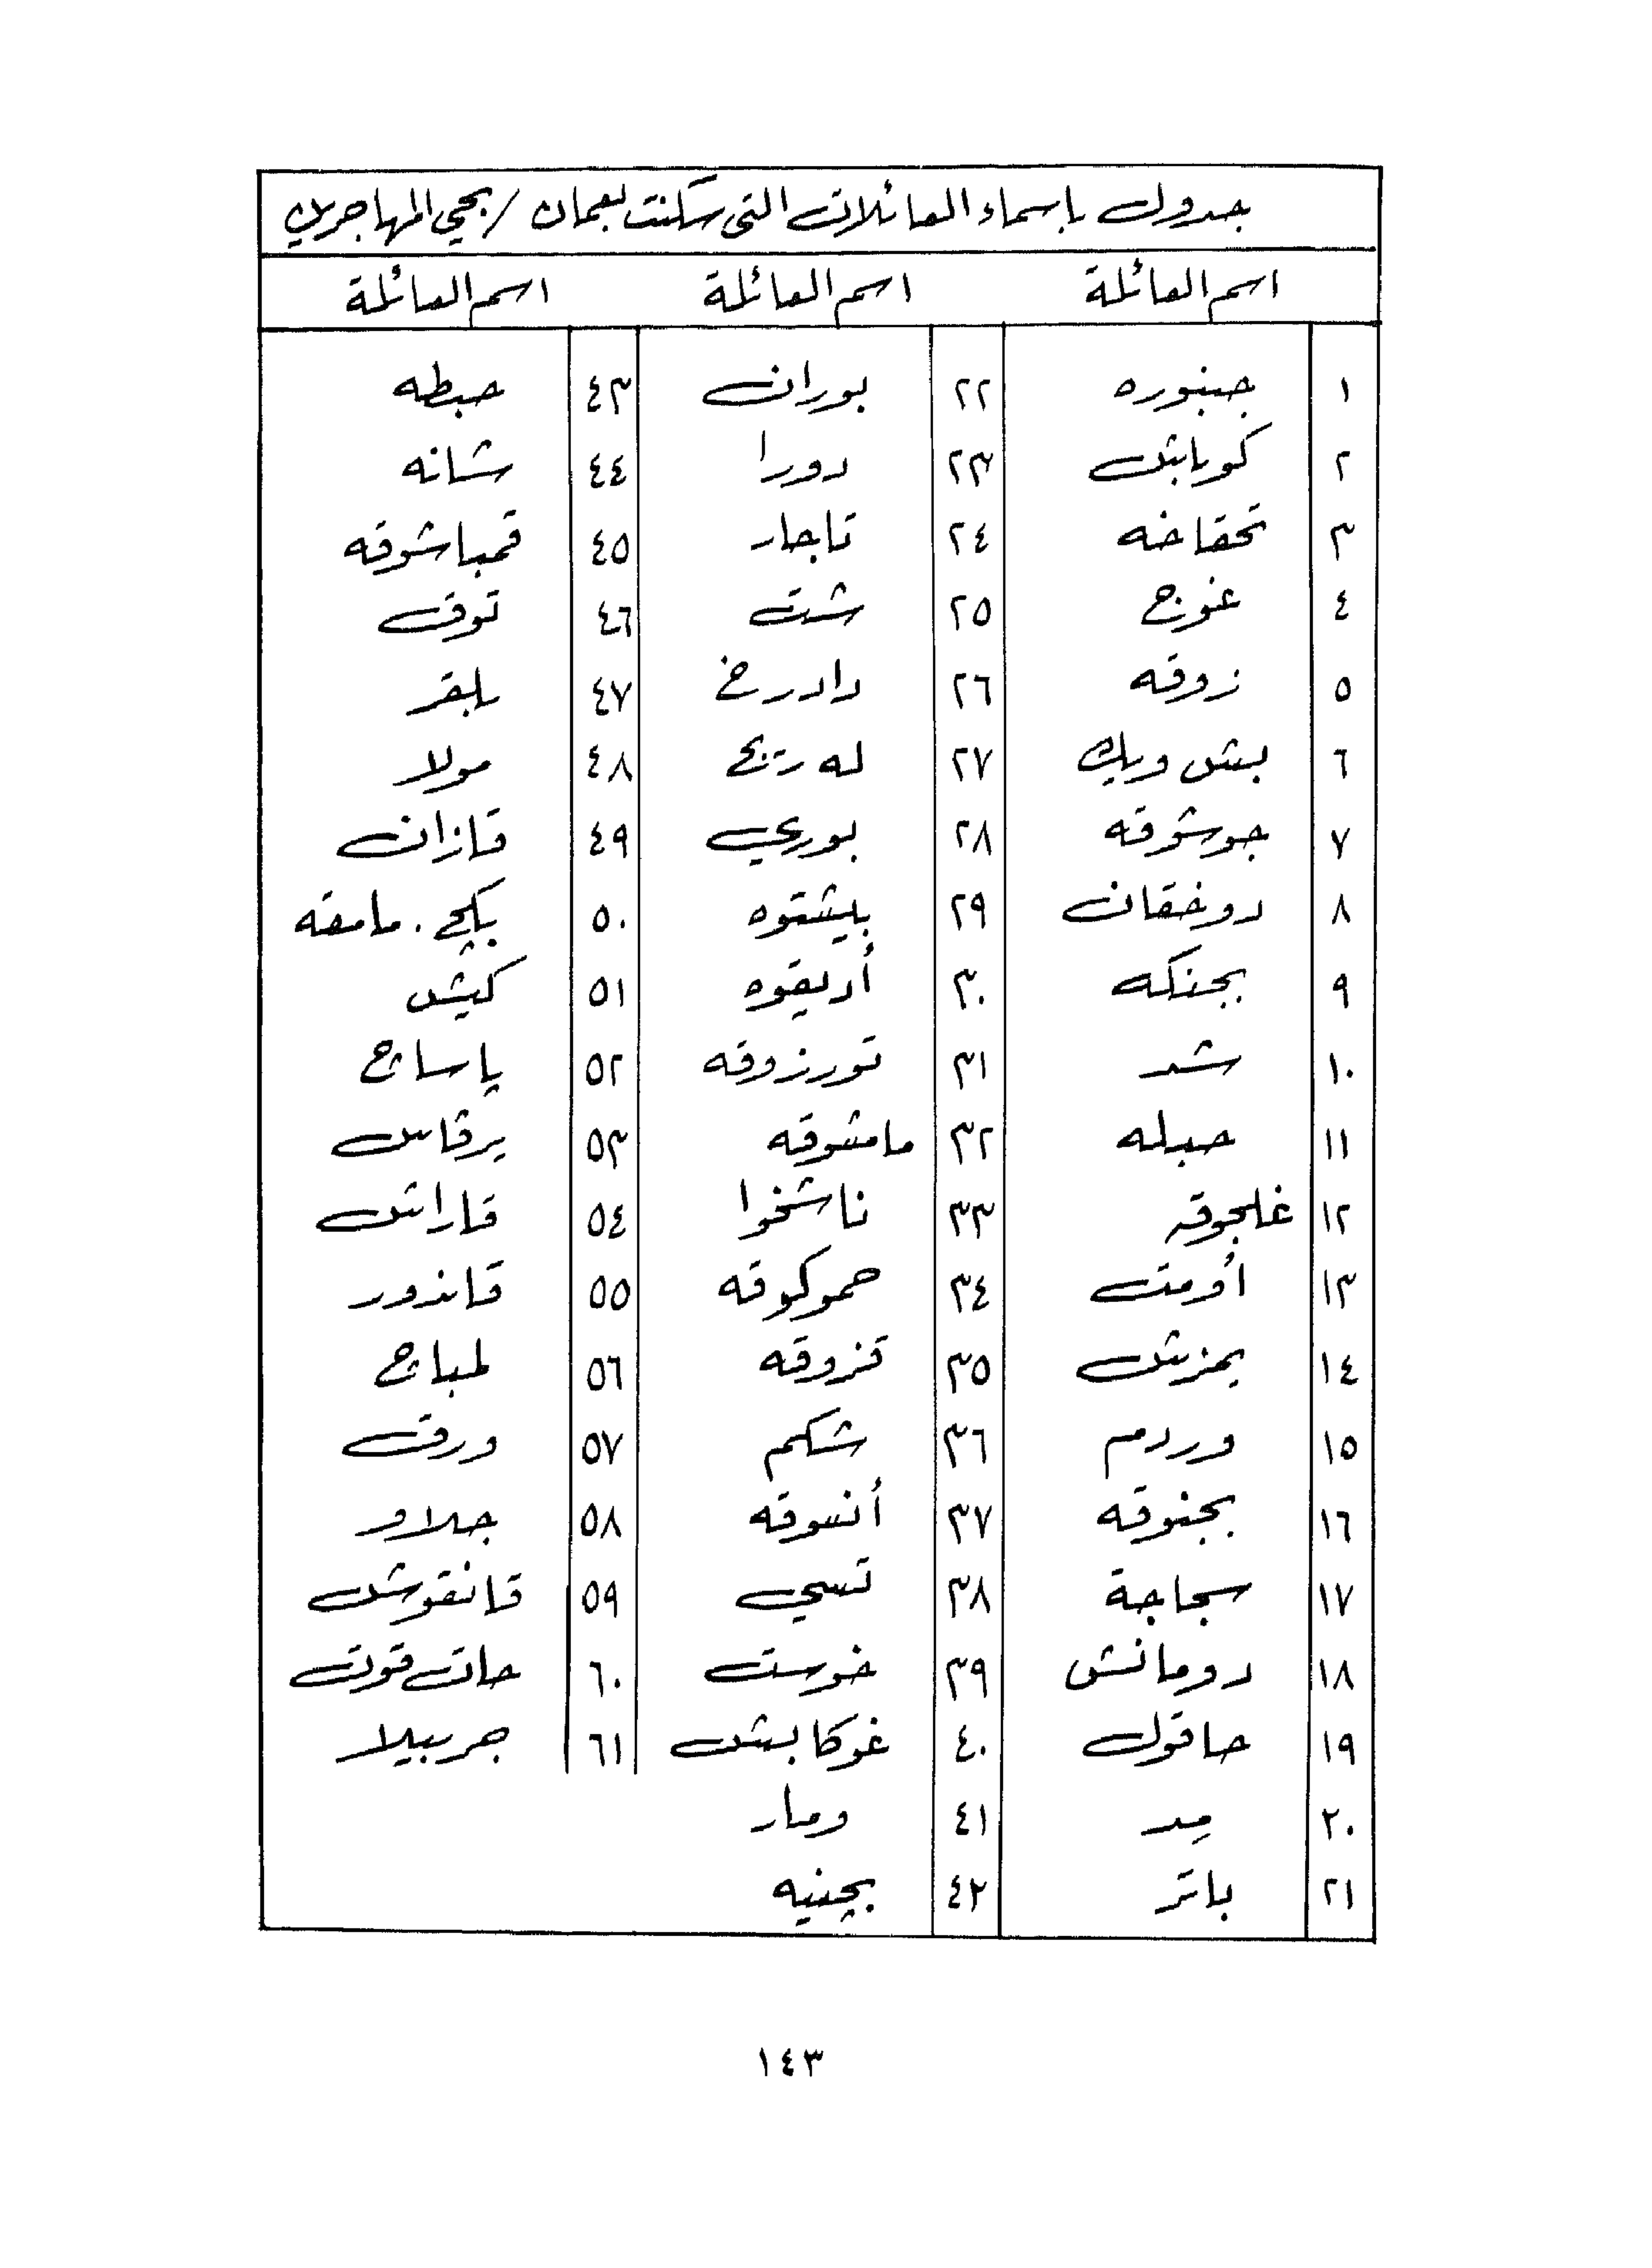 جدول باسماء العائلات التي سكنت بعمان / بحي المهاجرين
اسم العائلة اسم العائلة اسم العائلة
١ جبنوره ٢٢ بوران ٤٣ حبطه
٢ كوباشك ٢٣ دورا ٤٤ شانه
٣ تحقاخه ٢٤ تاجار ٤٥ قمباشوقه
٤ غوج ٢٥ شت ٤٦ توق
٥ زوقه ٢٦ دادرخ ٤٧ بلقر
٦ بش وبك ٢٧ له رتج ٤٨ مولا
٧ جوشوقه ٢٨ بوري ٤٩ قازان
٨ دوخقان ٢٩ بيشقوه ٥٠ بكج . مامقه
٩ بجنكه ٣٠ أديقوه ٥١ كيش
١٠ شد ٣١ تورزوقه ٥٢ ياساج
١١ حبله ٣٢ مامشوقه ٥٣ يرقاس
١٢ غلجوقه ٣٣ ناشخوا ٥٤ قاراشك
١٣ أومت ٣٤ حموكوقه ٥٥ قاندور
١٤ يمزشك ٣٥ قزوقه ٥٦ لمباج
١٥ وردم ٣٦ شكم ٥٧ ورق
١٦ بجنوقه ٣٧ أنسوقه ٥٨ جلاو
١٧ سجاجة ٣٨ تسي ٥٩ قانقوش
١٨ دومانش ٣٩ خوست ٦٠ حات قوت
١٩ حاقول ٤٠ غوكابش ٦١ هربيلا
٢٠ مد ٤١ ومار
٢١ باتر ٤٢ بجنيه
١٤٣